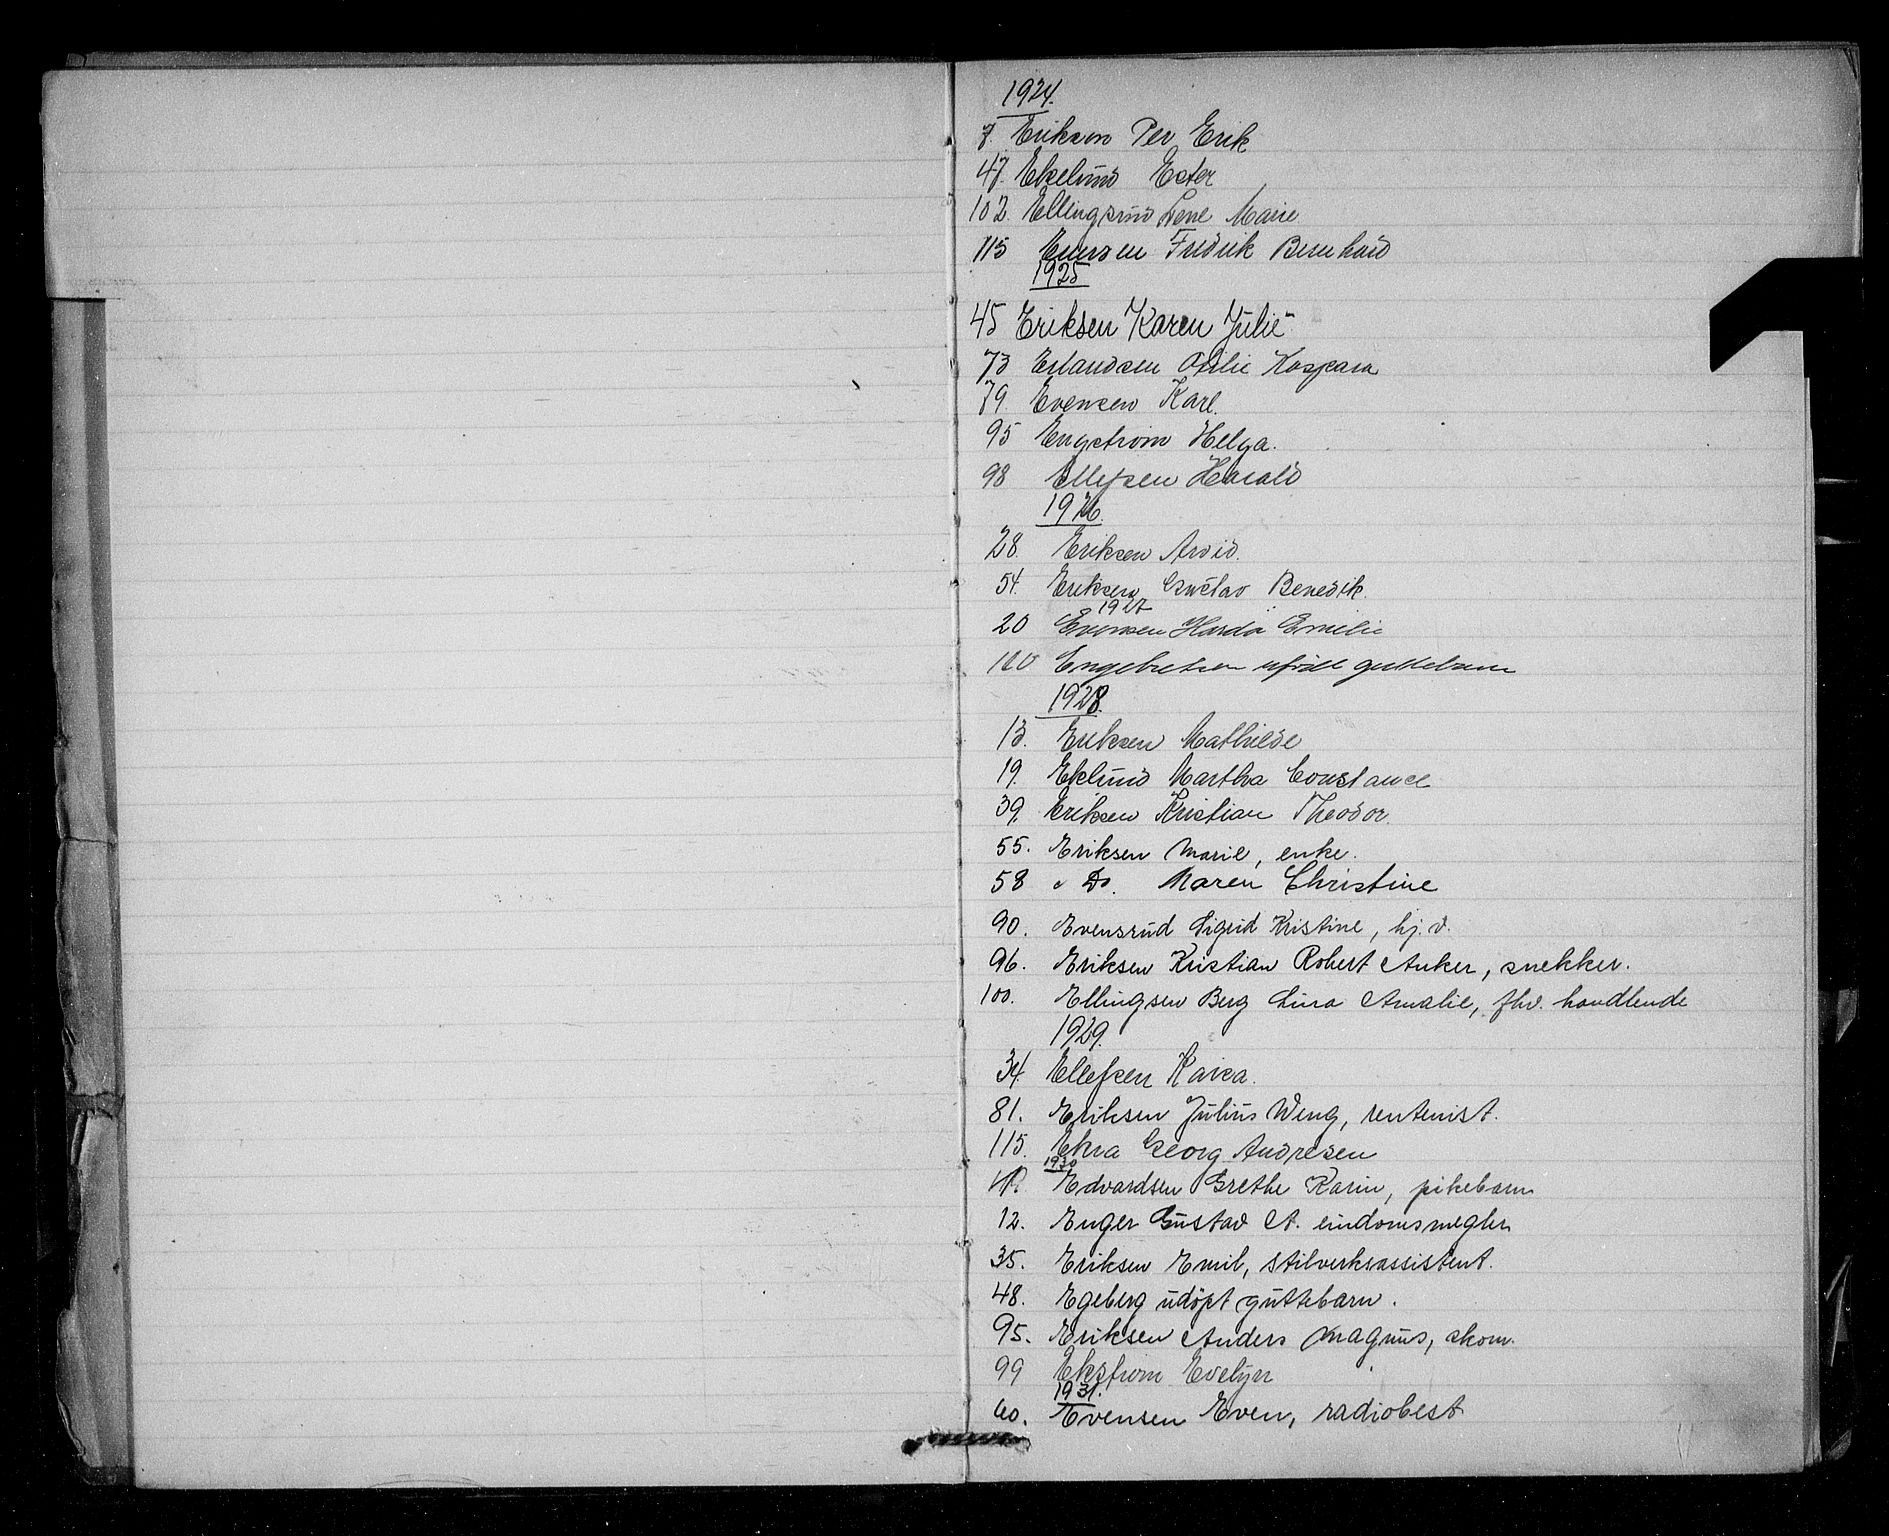 1924.
7. Erikson Per Erik
47. Ekelund Ester
102. Ellingsrud Lene Marie
115 Fredrik Bernhard
1925
45 Eriksen Karen Julie
73 Erlandsen Otilie Kaspara
79 Evensen Karl.
95 Engstrøm Helga.
98 Ellefsen Harald
1926.
28. Eriksen Arvid.
54. Eriksen Gustav Benedik.
1927
20 Evensen Harda Emilie
100 Engebretsen uføtt guttebarn
1928.
13. Eriksen Mathilde
19. Eklund Martha Constance
39. Eriksen Kristian Theodor.
55. Eriksen Marie, enke.
58 " Do. Maren Christine
90. Evensrud Sigrid Kristine, hj.v.
96. Eriksen Kristian Robert Anker, snekker.
100. Ellingsen Berg Lina Amalie, fhv. handlende
1929.
34. Ellefsen Kaisa.
81. Eriksen Julius Weng, rentenist.
115. Ekra Georg Andresen
1930
Edvardsen Grethe Karin, pikebarn
12. Enger Gustav A. eindomsmegler
35. Eriksen Emil, stilverksassistent.
48. Egeberg udøpt guttebarn.
95. Eriksen Anders Magnus, skom.
99 Ekstrøm Evelyn
1931.
60. Evensen Even, radiobest